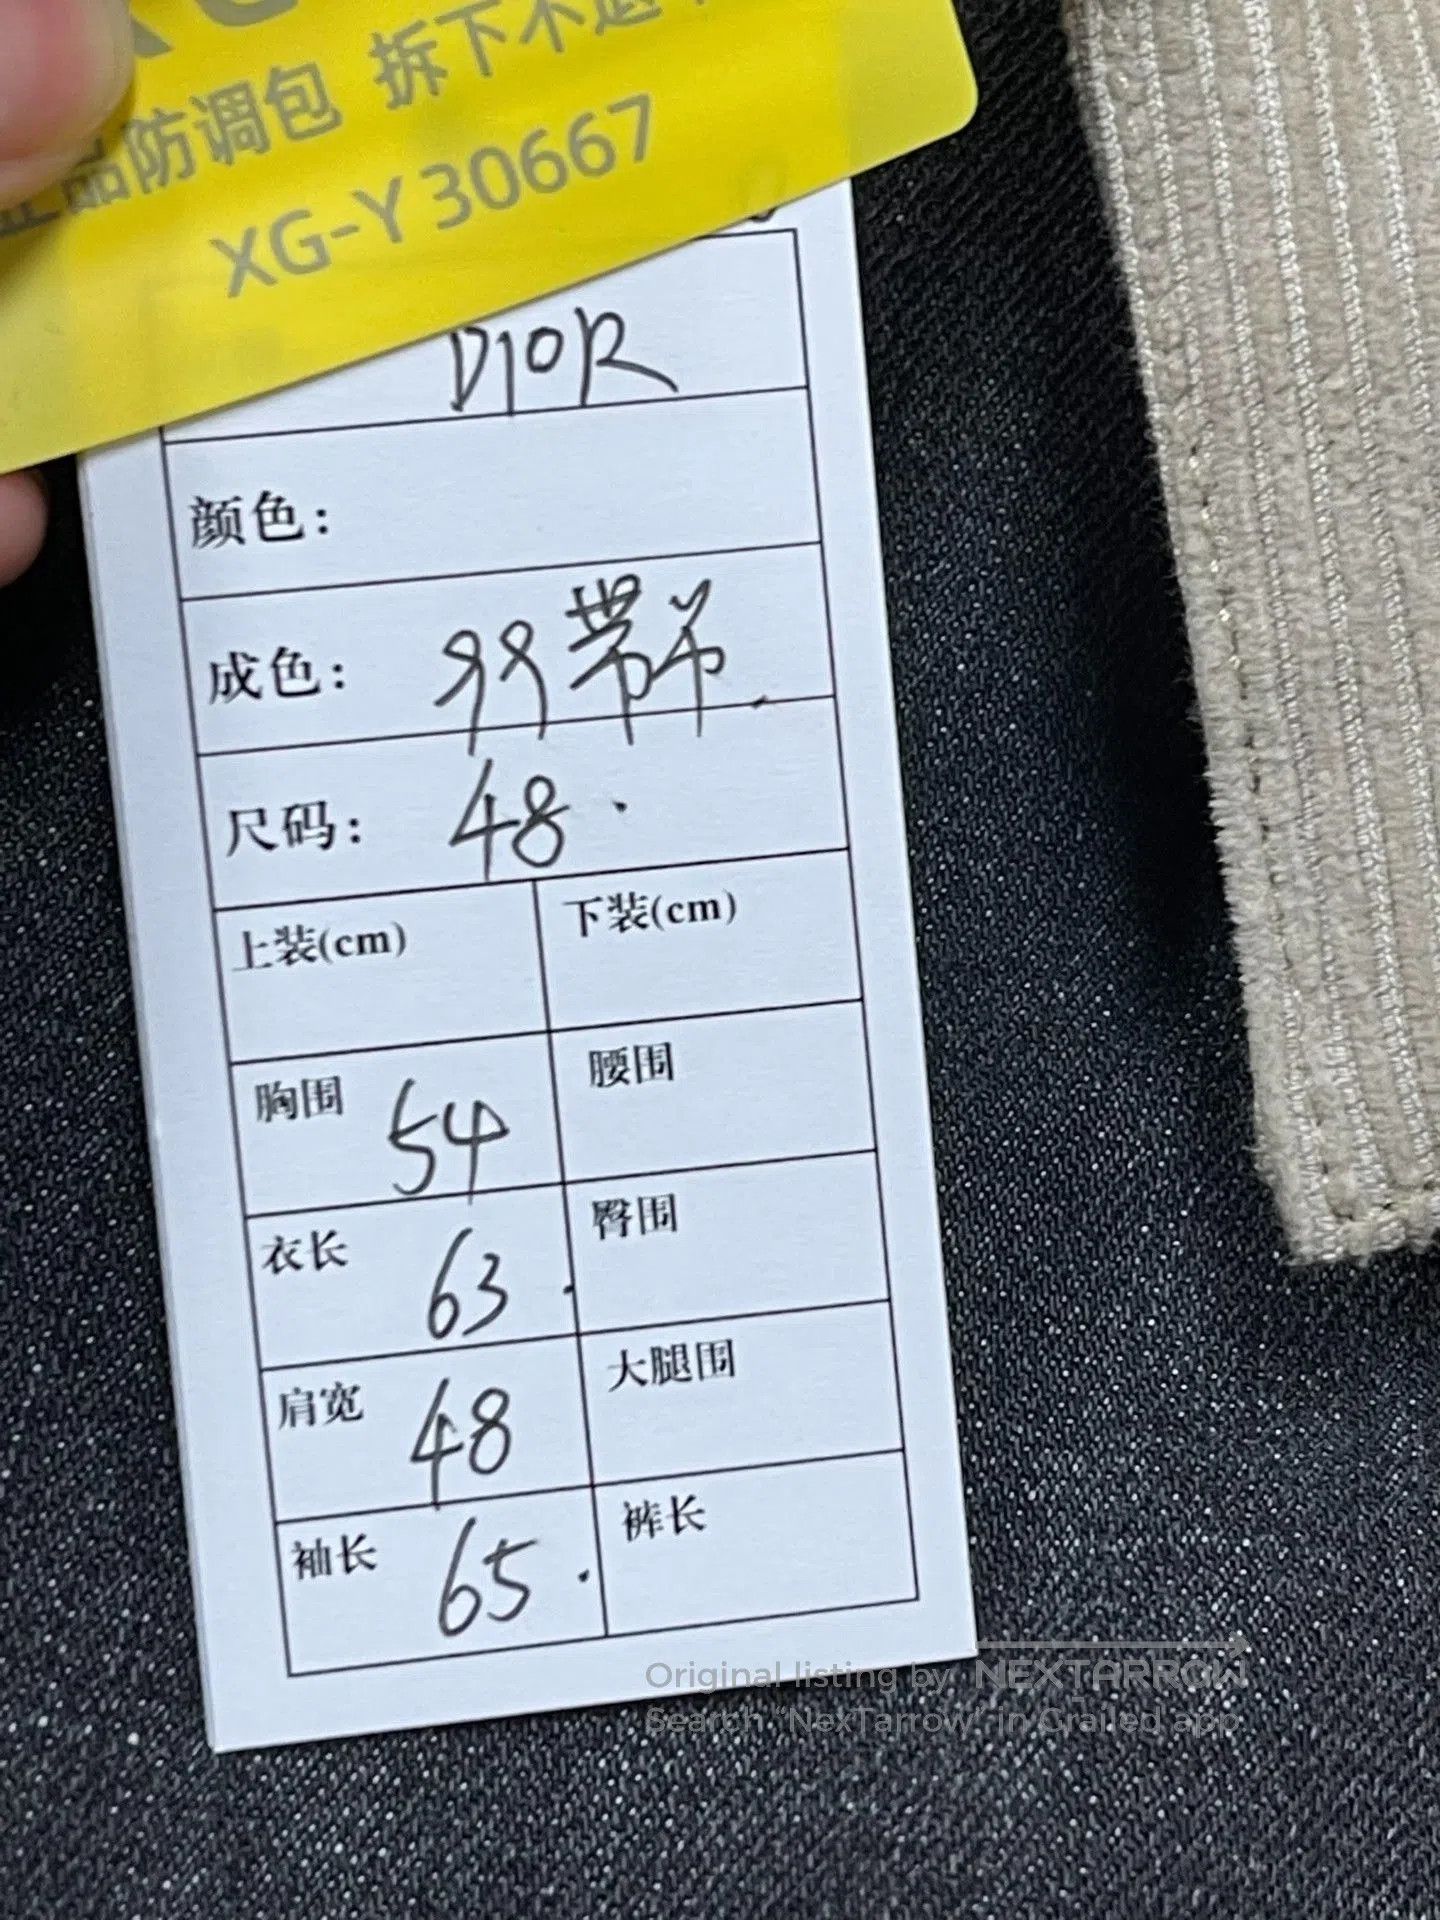 品防调包 拆下不退
XG-Y30667
DIOR
颜色:
成色: 99带吊.
尺码: 48.
上装(cm) 下装(cm)
胸围 54 腰围
衣长 63. 臀围
肩宽 48 大腿围
袖长 65. 裤长
Original listing by NEXTARROW
Search "NexTarrow" in Grailed app